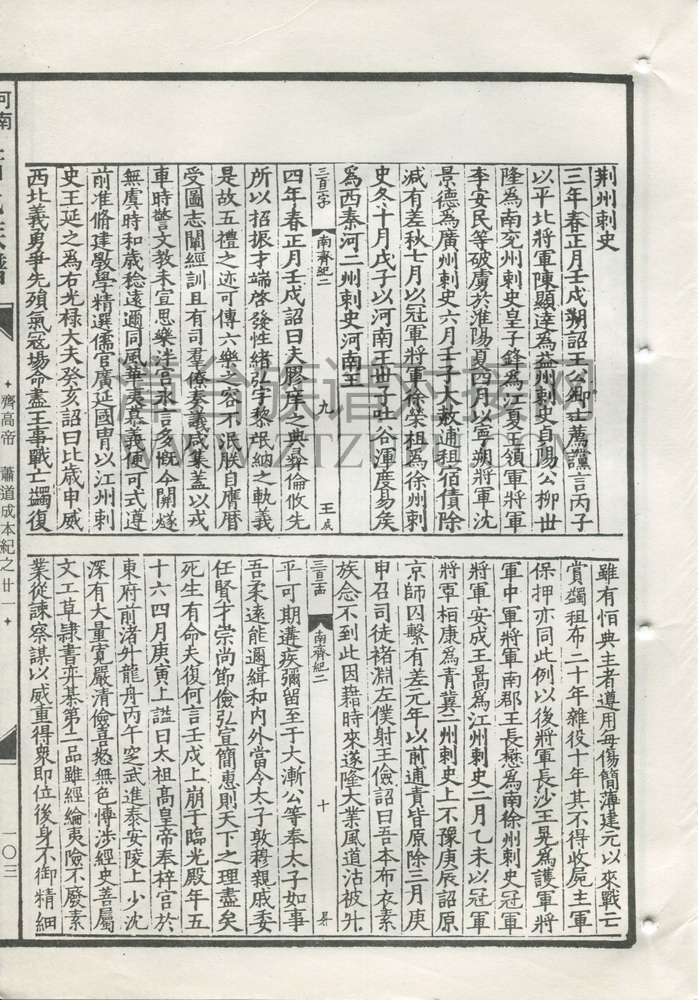 荆州刺史
三年春正月壬戌朔詔王公卿士薦讜言丙子
以平北將軍陳顯達為益州刺史貞陽公柳世
隆為南兖州刺史皇子鋒為江夏王領軍將軍
李安民等破虜於淮陽夏四月以寧朔將軍沈
景德為廣州刺史六月壬子大赦逋租宿債除
減有差秋七月以冠軍將軍徐榮祖為徐州刺
史冬十月戊子以河南王世子吐谷渾度易矦
為西秦河二州刺史河南王
南齊紀二
九
四年春正月壬戌詔曰夫膠庠之典彝倫攸先
所以招振才端啓發性緒弘字黎氓納之軌義
是故五禮之迹可傳六樂之容不泯朕自膺曆
受圖志闡經訓且有司羣僚奏議咸集蓋以戎
車時警文教未宣思樂泮宮永言多慨今關燧
無虞時和歲稔遠邇同風華夷慕義便可式遵
前准脩建斆學精選儒官廣延國胄以江州刺
史王延之為右光禄大夫癸亥詔曰比歲申威
西北義勇爭先殞氣寇場命盡王事戰亡蠲復
雖有恒典主者遵用每傷簡薄建元以來戰亡
賞蠲租布二十年雜役十年其不得收屍主軍
保押亦同此例以後將軍長沙王晃為護軍將
軍中軍將軍南郡王長懋為南徐州刺史冠軍
將軍安成王暠為江州刺史二月乙未以冠軍
將軍桓康為青冀二州刺史上不豫庚辰詔原
京師囚繫有差元年以前逋責皆原除三月庚
申召司徒褚淵左僕射王儉詔曰吾本布衣素
族念不到此因藉時來遂隆大業風道沾被升
南齊紀二
十
平可期遘疾彌留至于大漸公等奉太子如事
吾柔遠能邇緝和內外當令太子敦穆親戚委
任賢才崇尚節儉弘宣簡惠則天下之理盡矣
死生有命夫復何言壬戌上崩于臨光殿年五
十六四月庚寅上諡曰太祖高皇帝奉梓宮於
東府前渚升龍舟丙午窆武進泰安陵上少沈
深有大量寬嚴清儉喜怒無色愽涉經史善屬
文工草隷書弈棊第二品雖經綸夷險不廢素
業從諫察謀以威重得衆即位後身不御精細
齊高帝 蕭道成本紀之廿一
一〇三
漳台族谱对接网
WWW.ZTZUPU.COM